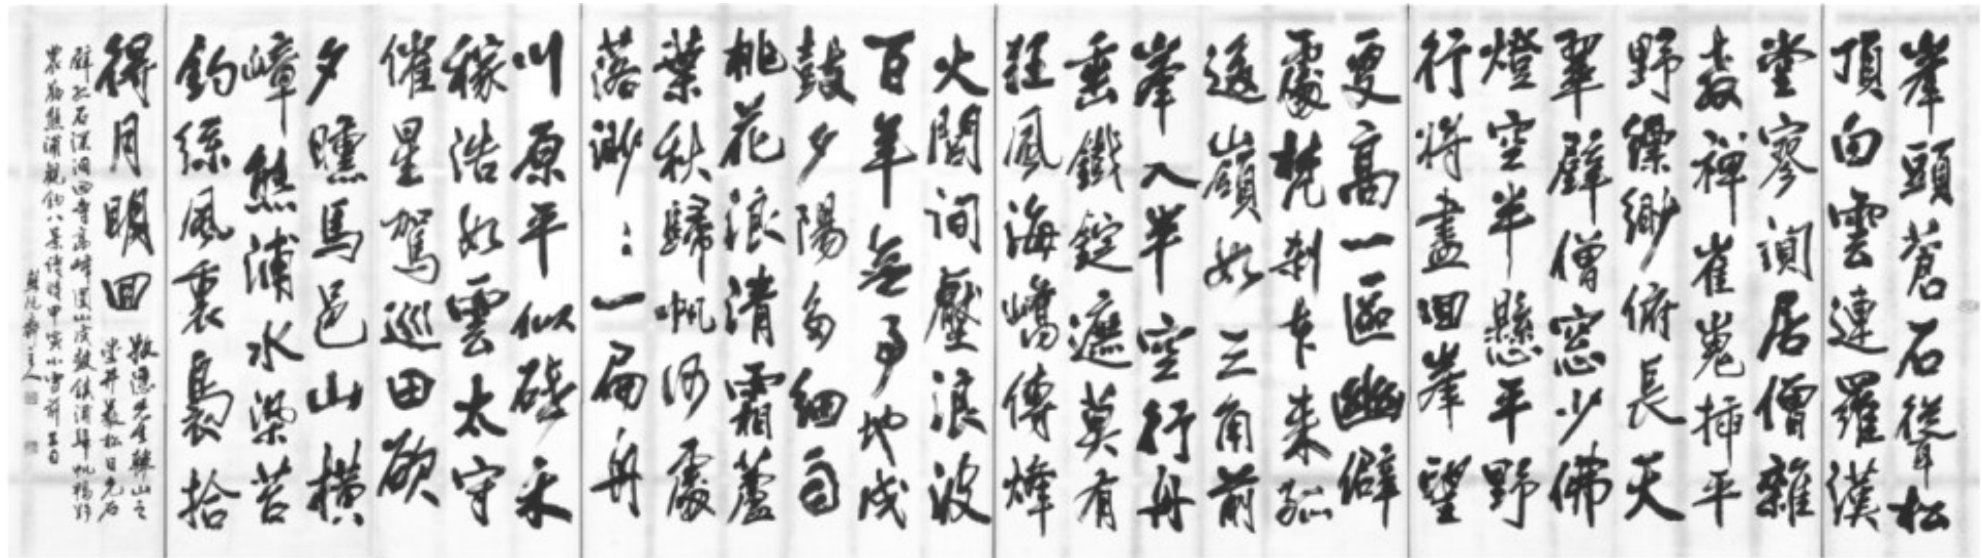 峯頭蒼石聳松
頂白雲連羅漢
堂寥闃居僧雜
教禪崔嵬揷平
野縹緲俯長天
翠壁僧窓少佛
燈空半懸平野
行將盡回峯望
更高一區幽僻
處梵刹古來孤
逈嶺如三角前
峯入半空行舟
垂鐵錠遮莫有
狂風海嶠傳烽
火閭閻壓浪波
百年無事地戍
鼓夕陽多細雨
桃花浪清霜蘆
葉秋歸帆何處
落渺〻一扁舟
川原平似砥禾
稼浩如雲太守
催星駕巡田欲
夕曛馬邑山橫
嶂熊浦水染苔
釣絲風裏裊拾
得月明回
熊浦觀釣八景詩時甲寅小雪前五日